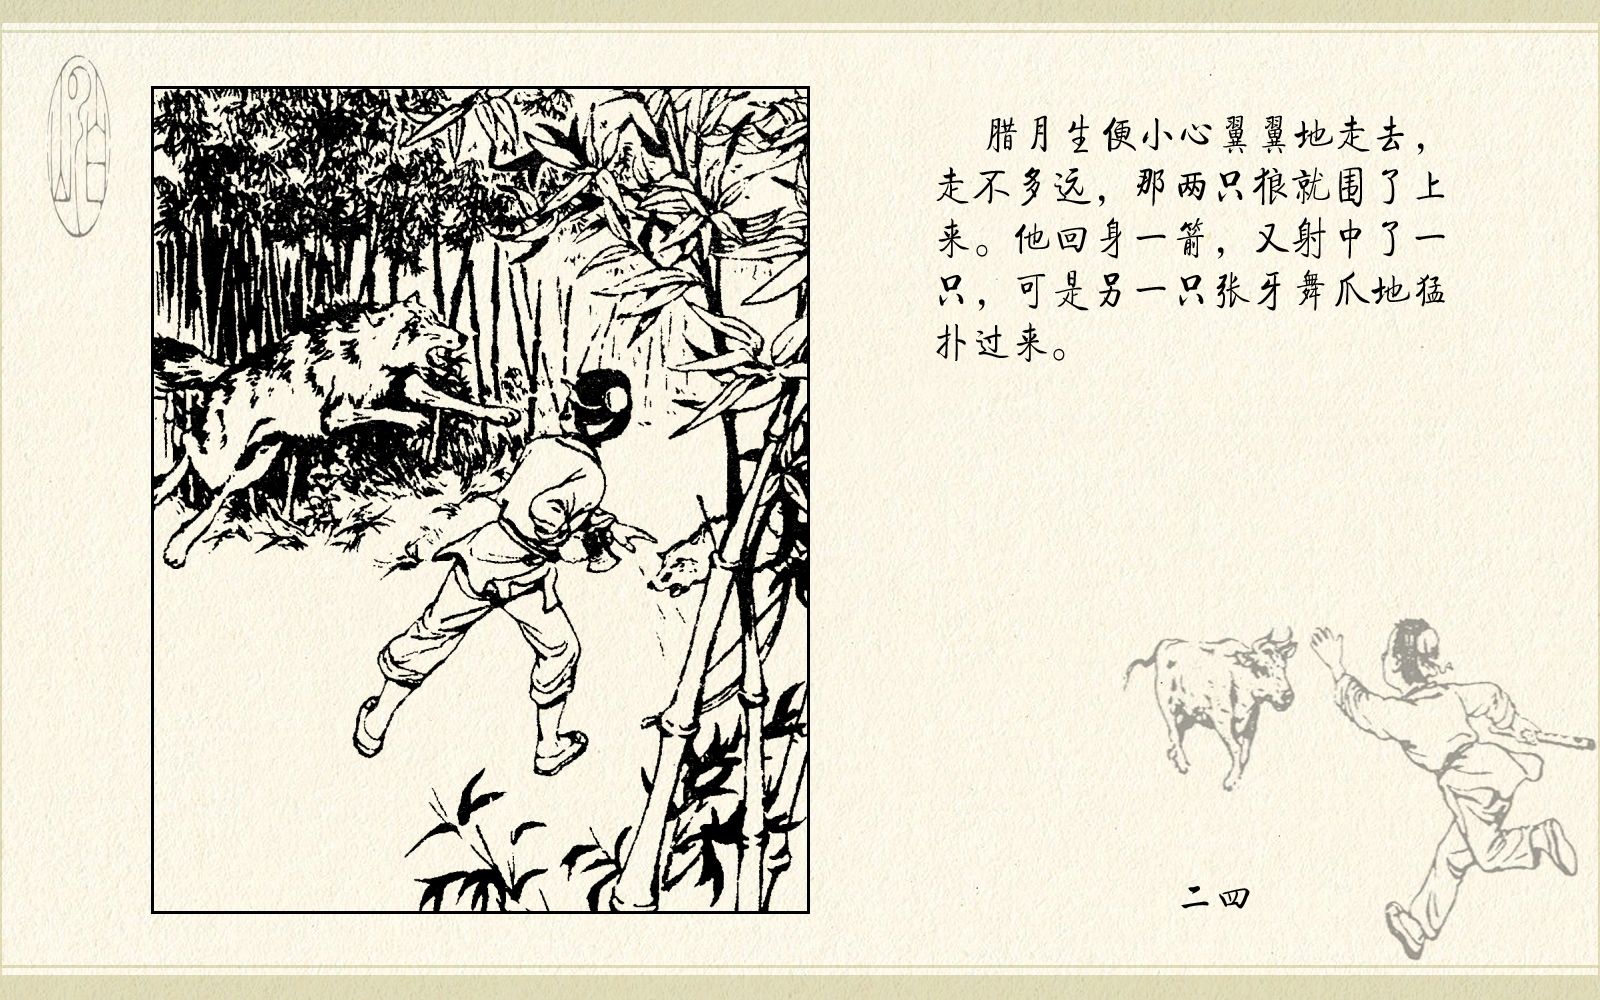 腊月生便小心翼翼地走去，
走不多远，那两只狼就围了上
来。他回身一箭，又射中了一
只，可是另一只张牙舞爪地猛
扑过来。
二四